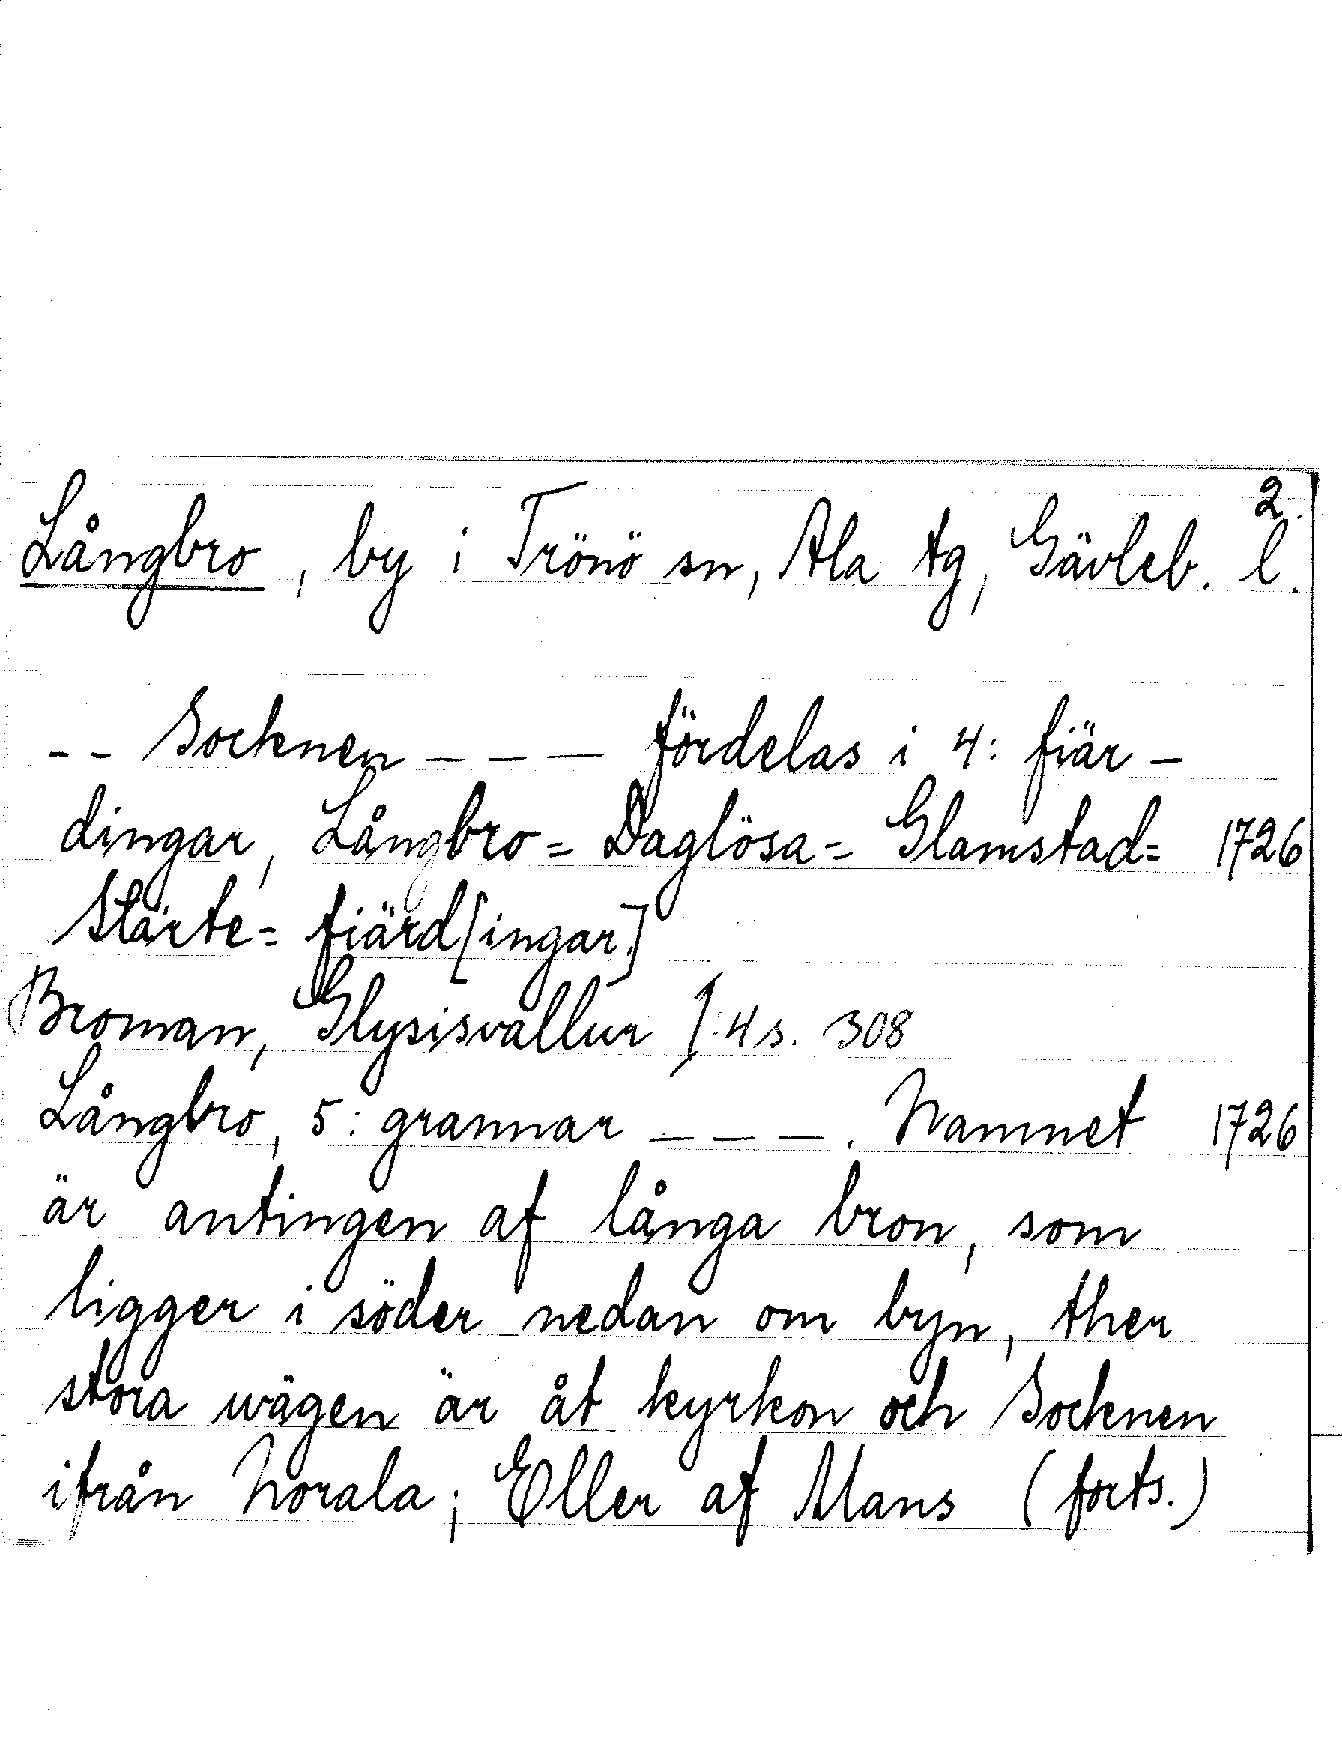 2.
Långbro, by i Trönö sn, Ala tg, Gävleb. l.
-- Socknen --- fördelas i 4: fiär-
dingar, Långbro= Daglösa= Glamstad= 1726
Stärte= fiärd[ingar.]
Broman, Glysisvallur I:4 s. 308
Långbro, 5: grannar ---. Namnet 1726
är antingen af långa bron, som
ligger i söder nedan om byn, ther
stora wägen är åt kyrkon och Socknen
ifrån Norala; Eller af Mans (forts.)